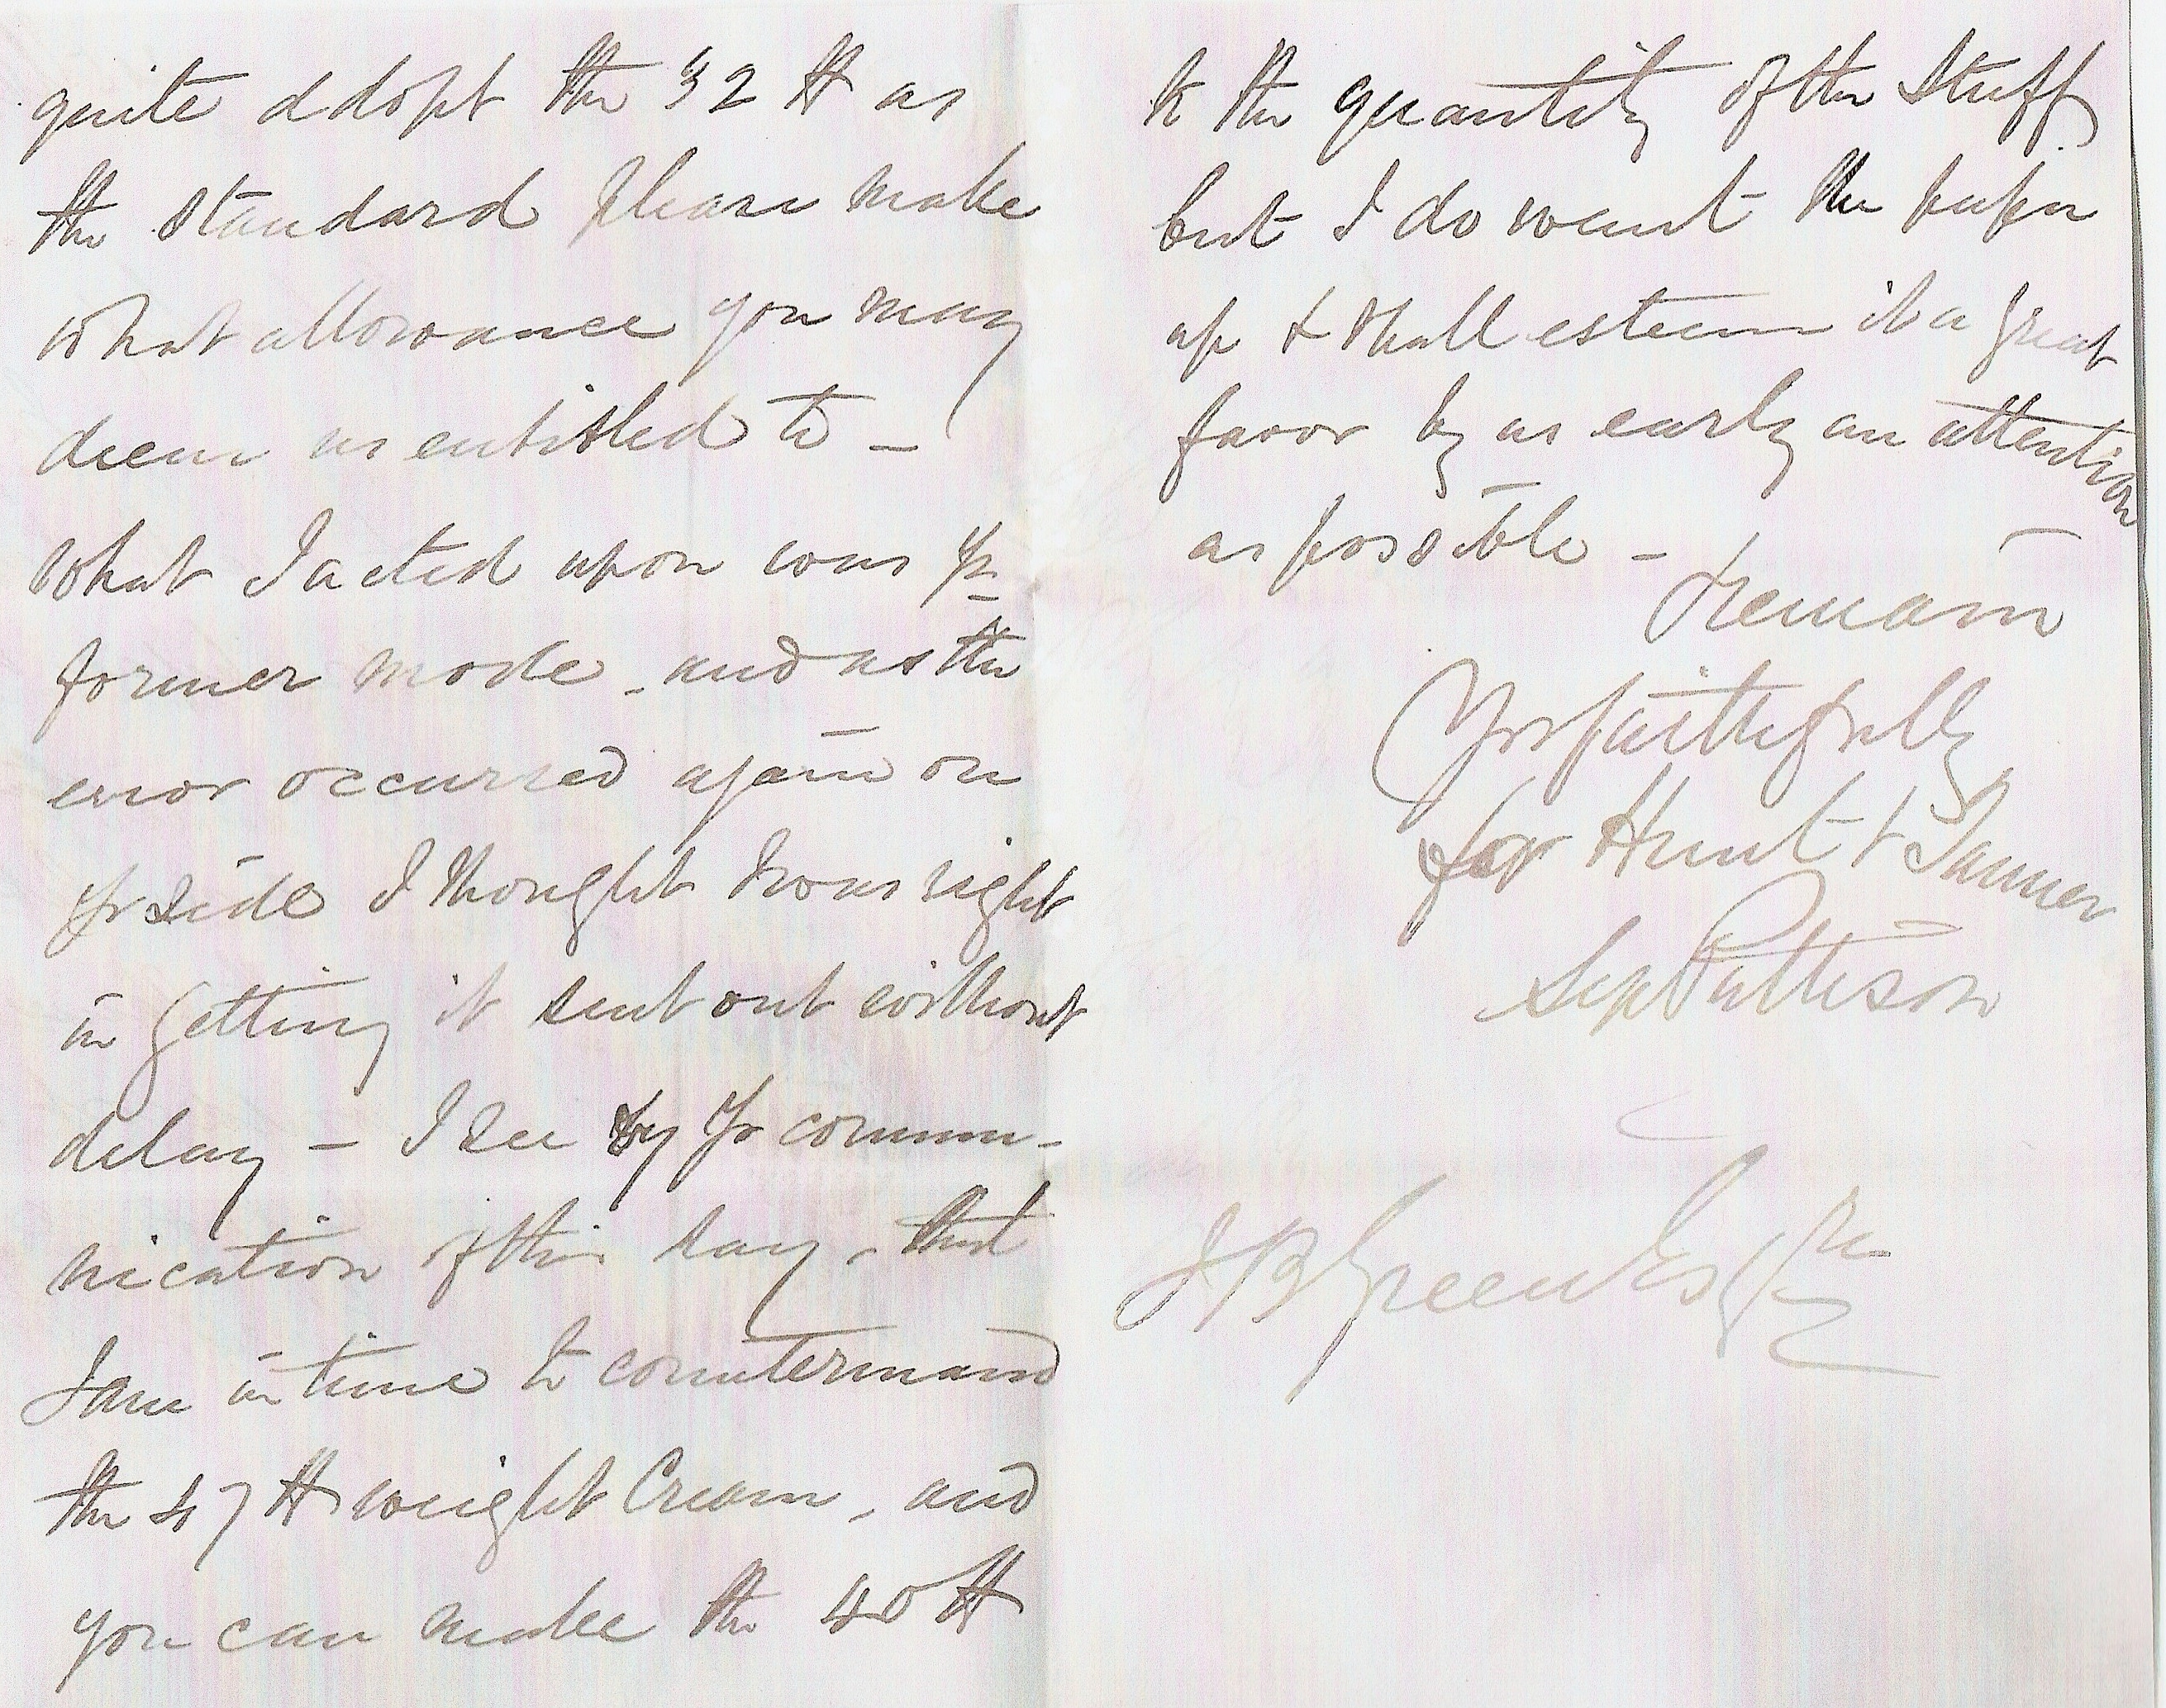 quite adopt the 32 lb as
the standard please make
what allowance you may
deem us entitled to –
What I acted upon was Yr
former mode – and as the
error occurred again on
Yr side I thought I was right
in getting it sent out without
delay – I see by Yr commu-
nication of this day – that
I am in time to countermand
the 47 lb weight Cream – and
you can make the 40 lb
to the quantity of the Stuff
but I do want the paper
up & shall esteem it a great
favor by as early an attention
as possible –
I remain
Yrs faithfully
for Hunt & Tanner
Sep Pattison
J B Green Esqre